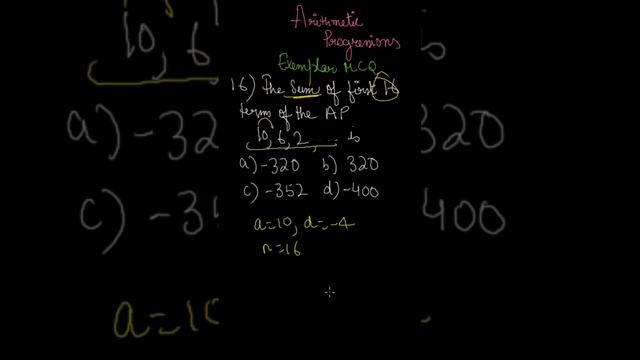 Arithmetic
Progressions
Exemplar MCQ
16) The Sum of first 16
term of the AP
10, 6, 2 ... is
a) -320 b) 320
c) -352 d) -400
a=10, d=-4
n=16
10, 6
a) -320
c) -35
400
a=10